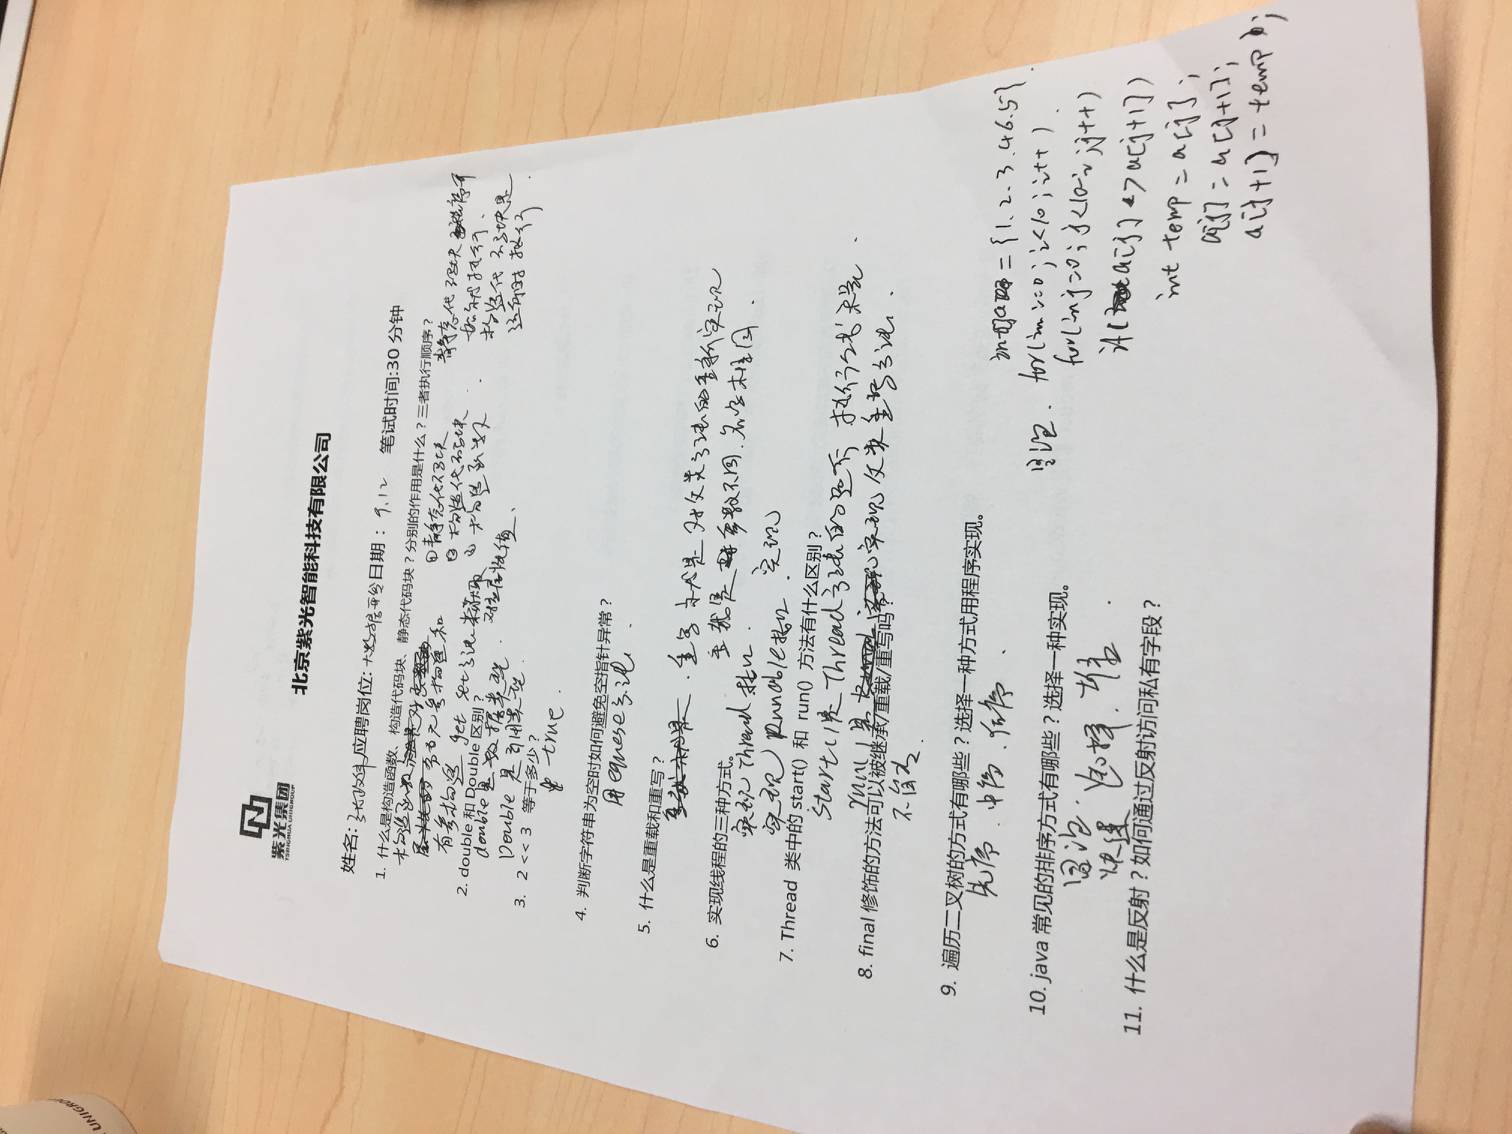 UNIGRO
紫光集团
TSINGHUA UNIGROUP
北京紫光智能科技有限公司
姓名: 应聘岗位: 大数据开发 日期： 9.12 笔试时间:30 分钟
1. 什么是构造函数、构造代码块、静态代码块？分别的作用是什么？三者执行顺序？
构造函数
分为无参构造和
有参构造 get set方法来获取
对应属性值、
① 静态代码块
② 构造代码块
③ 构造函数
静态代码块 程序开
始就执行、
构造代码块是
运行时执行
2. double 和 Double 区别？
double是数据类型、
Double 是引用类型、
3. 2 << 3 等于多少？
true、
4. 判断字符串为空时如何避免空指针异常？
用equese方法、
5. 什么是重载和重写？
重写就是对父类方法的重新实现
重载是参数不同、名字相同、
6. 实现线程的三种方式。
实现 Thread 接口、
实现 Runnable接口、实现
7. Thread 类中的 start() 和 run() 方法有什么区别？
start()是 Thread方法的 执行
run()是 实现父类重写方法、
8. final 修饰的方法可以被继承/重载/重写吗？
不能、
9. 遍历二叉树的方式有哪些？选择一种方式用程序实现。
先序、中序、后序、
10. java 常见的排序方式有哪些？选择一种实现。
冒泡、
快速 选择、
11. 什么是反射？如何通过反射访问私有字段？
int[]a = {1.2.3.46.5}
冒泡、 for(int i=0;i<10;i++)
for(int j=0;j<10-i;j++)
if(a[j]>a[j+1])
int temp = a[j];
a[j] = a[j+1];
a[j+1] = temp;